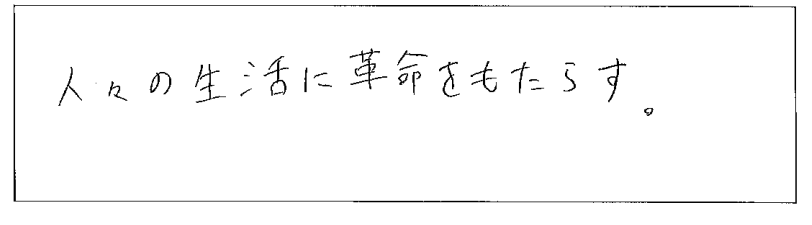 人々の生活に革命をもたらす。